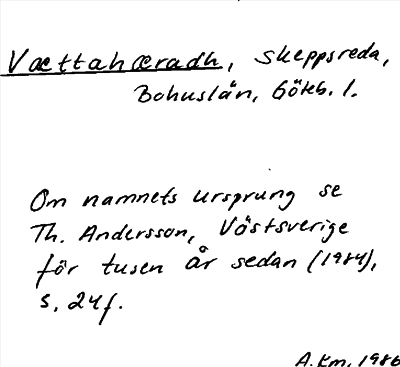 Vættahæradh, skeppsreda,
Bohuslän, Göteb. l.
Om namnets ursprung se
Th. Andersson, Västsverige
för tusen år sedan (1984),
s. 24f.
A.Km. 1986